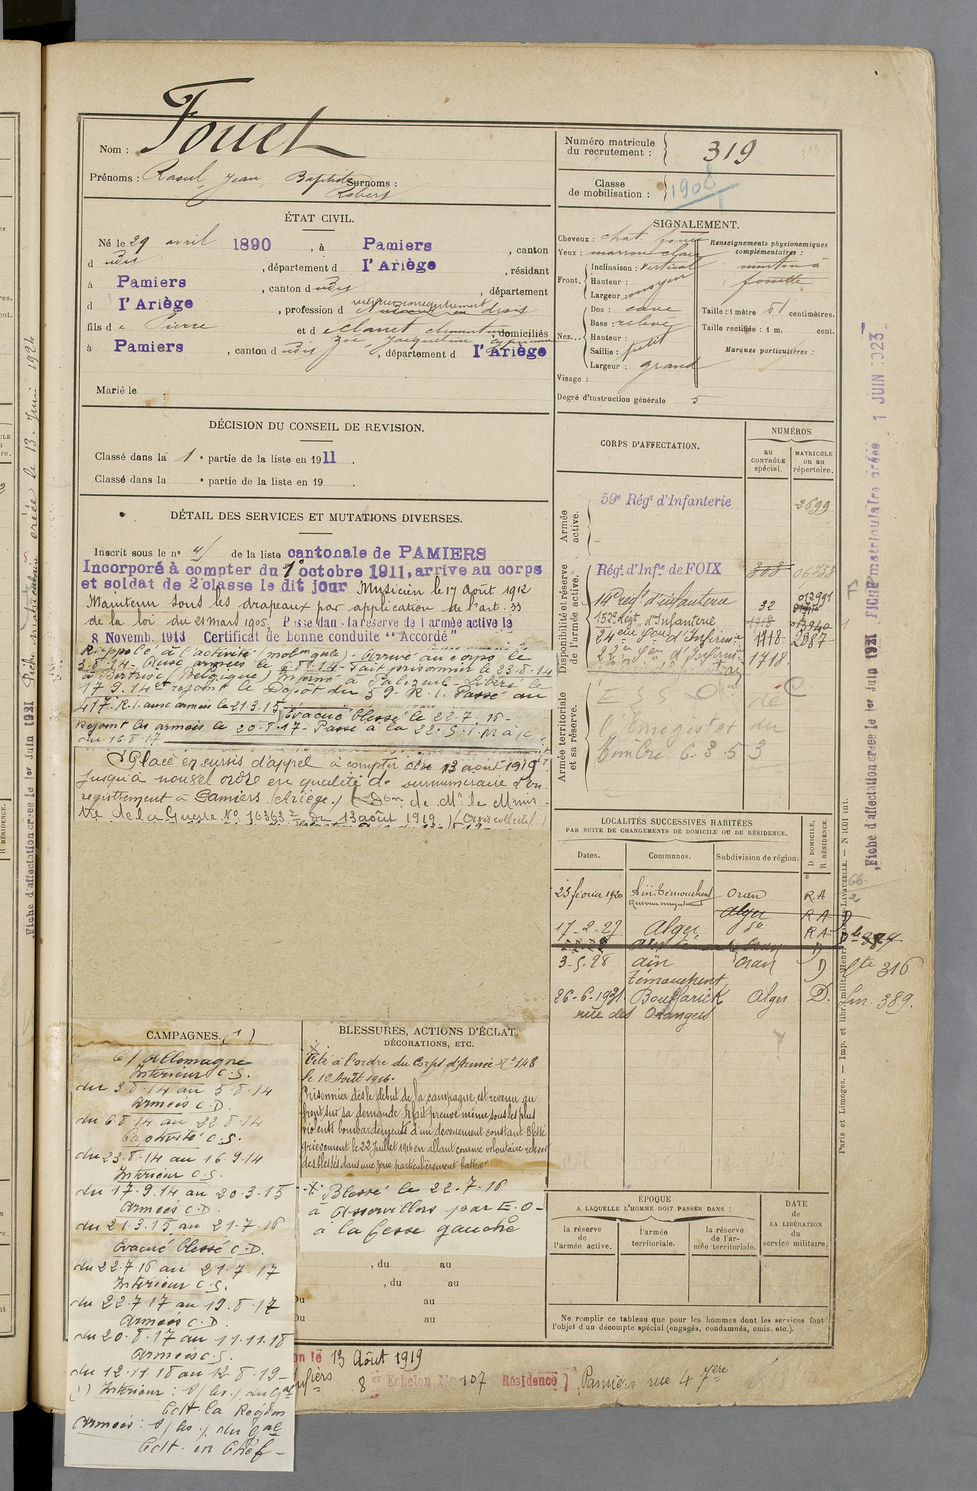 Nom : Fouet
Prénoms : Raoul, Jean, Baptiste Surnoms :
Robert
ÉTAT CIVIL.
Né le 29 avril 1890, à Pamiers, canton
d udit, département d l'Ariège, résidant
à Pamiers, canton d udit, département
d l'Ariège, profession d en droit
fils de Pierre et de Eclanet domiciliés
Zoé, Jacqueline
à Pamiers, canton d udit, département d l'Ariège
Marié le
DÉCISION DU CONSEIL DE REVISION.
Classé dans la 1e partie de la liste en 1911.
Classé dans la e partie de la liste en 19 .
DÉTAIL DES SERVICES ET MUTATIONS DIVERSES.
Inscrit sous le no 4 de la liste cantonale de PAMIERS
Incorporé à compter du 1er octobre 1911, arrive au corps
et soldat de 2e classe le dit jour Musicien le 17 Août 1912
Maintenu sous les drapeaux par application de l'art. 33
de la loi du 21 mars 1905. Passe dans la réserve de l'armée active le
8 Novemb. 1913 Certificat de bonne conduite "Accordé"
Rappelé à l'activité (mobon gale) - Arrivé au corps le
3-8-14 - Aux armées le 6-8-14 - Fait prisonnier le 23-8-14
à Bertrix (Belgique) Interné à Libéré le
17-9-14 et rejoint le Dépôt du 59e R.I. Passé au
417e R.I. aux armées le 21.3.15 Evacué blessé le 22-7-16 -
Rejoint les armées le 20-8-17 - Passé à la 22e S.I.M.A. le
16 8 17
Placé en sursis d'appel à compter du 13 août 1919
jusqu'à nouvel ordre en qualité de surnuméraire d'en-
registrement à Pamiers (Ariège) (Don de Mr le Minis-
tre de la Guerre No 16363 du 13 août 1919) (Avis collectif)
CAMPAGNES. (1)
c/ Allemagne
Intérieur C.S.
du 3-8-14 au 5-8-14
Armées C.D.
du 6-8-14 au 22-8-14
Captivité C.S.
du 23-8-14 au 16-9-14
Intérieur C.S.
du 17-9-14 au 20-3-15
Armées C.D.
du 21-3-15 au 21-7-16
Evacué blessé C.D.
du 22-7-16 au 21-7-17
Intérieur C.S.
du 22-7-17 au 19-8-17
Armées C.D.
du 20-8-17 au 11-11-18
Armées C.S.
du 12-11-18 au 12-8-19 -
(1) Intérieur : s/ les / du Gal
Cdt la Région
Armées : s/ les / du Gal
Cdt en Chef -
BLESSURES, ACTIONS D'ÉCLAT,
DÉCORATIONS, ETC.
Cité à l'ordre du Corps d'Armée No 148
le 1er Août 1916.
Prisonnier dès le début de la campagne est revenu au
front sur sa demande. A fait preuve même sous les plus
violents bombardements d'un dévouement constant. Blessé
grièvement le 22 Juillet 1916 en allant comme volontaire relever
des blessés dans une zone particulièrement battue"
Blessé le 22-7-16
à Assevillers par E.O -
à la fesse gauche
, du au
, du au
Du au
Du au
on le 13 Août 1919
8e Echelon No 107 Résidence Pamiers rue 4 7bre
Numéro matricule du recrutement : 319
Classe de mobilisation : 1908
SIGNALEMENT.
Cheveux : chat. foncé
Yeux : marron clair
Front. Inclinaison : vertical
Hauteur :
Largeur : moyen
Nez. Dos : cave
Base : relevé
Hauteur :
Saillie : petit
Largeur : grand
Visage :
Degré d'instruction générale 5
Renseignements physionomiques complémentaires :
menton à
fossette
Taille : 1 mètre 51 centimètres.
Taille rectifiée : 1 m. cent.
Marques particulières :
CORPS D'AFFECTATION.
NUMÉROS
AU CONTRÔLE spécial.
MATRICULE OU AU répertoire.
Armée active.
59e Régt d'Infanterie 2699
Disponibilité et réserve de l'armée active.
Régt d'Infie de FOIX 308 06788
14e rég d'infanterie 32
152e dégt d'Infanterie 1118
24ème Son d'Infirmiers 1118 2987
22e Son d'Infirm. 1718
Armée territoriale et sa réserve.
E S S O de
l'Enregistrt et du
timbre 6.3.53
LOCALITÉS SUCCESSIVES HABITÉES
PAR SUITE DE CHANGEMENTS DE DOMICILE OU DE RÉSIDENCE.
Dates. Communes. Subdivision de région. D DOMICILE, R RÉSIDENCE.
23 février 1920 Aïn-Témouchent Oran R A
Alger R A
17-2-27 Alger do R A
3-5-28 Aïn Oran D
Témouchent
26-6-1931 Bouffarick Alger D.
rue des Orangers
316
389.
ÉPOQUE
A LAQUELLE L'HOMME DOIT PASSER DANS :
la réserve de l'armée active.
l'armée territoriale.
la réserve de l'armée territoriale.
DATE DE LA LIBÉRATION du service militaire.
Ne remplir ce tableau que pour les hommes dont les services font
l'objet d'un décompte spécial (engagés, condamnés, omis, etc.).
Paris et Limoges. — Imp. et libr. militre Henri CHARLES-LAVAUZELLE. — N 1COI int.
Fiche d'affectation créée le 1er Juin 1921 Fiche matriculaire créée 1 JUIN 1923
Fiche d'affectation créée le 1er Juin 1921 Fiche matriculaire créée le 13 Juin 1924